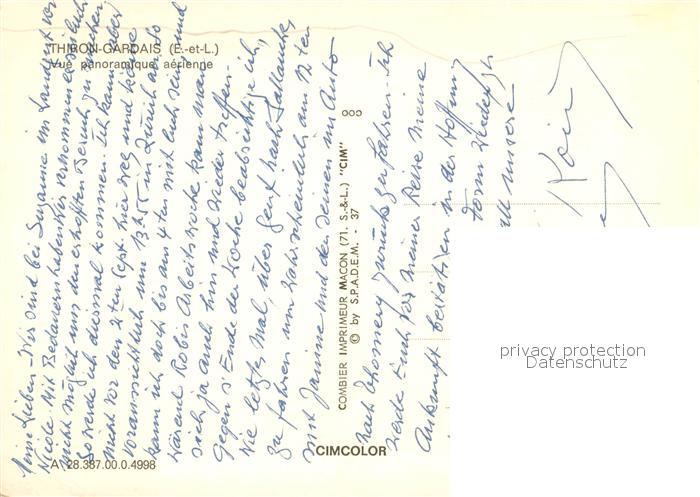 THIRON-GARDAIS (E.-et-L.)
Vue panoramique aérienne
Meine Lieben - Wir sind bei Susanne im Land ist vor
Nicole. Mit Bedauern haben wir vernommen dass es Euch
nicht möglich uns den erhofften Besuch zu machen.
So werde ich diesmal kommen. Ich kann aber
nicht vor den 2ten Sept. hier weg und käme
voraussichtlich um 13.55 in Zürich an. So
kann ich doch bis am 4ten mit Euch sein und
während Robis Arbeitswoche kann man
sich ja auch hin und wieder treffen -
Gegen's Ende der Woche beabsichtige ich,
wie letztes Mal, über Genf nach Sallanches
zu fahren um wahrscheinlich am 12ten
mit Janine und den Deinen im Auto
nach Thomery zurückzufahren - Ich
werde Euch vor meiner Reise meine
Ankunft bestätigen in der Hoffnung
unsere
COMBIER IMPRIMEUR MACON (71. S.-&-L.) "CIM"
© by S.P.A.D.E.M. - 37
CIMCOLOR
A. 28.387.00.0.4998
privacy protection
Datenschutz